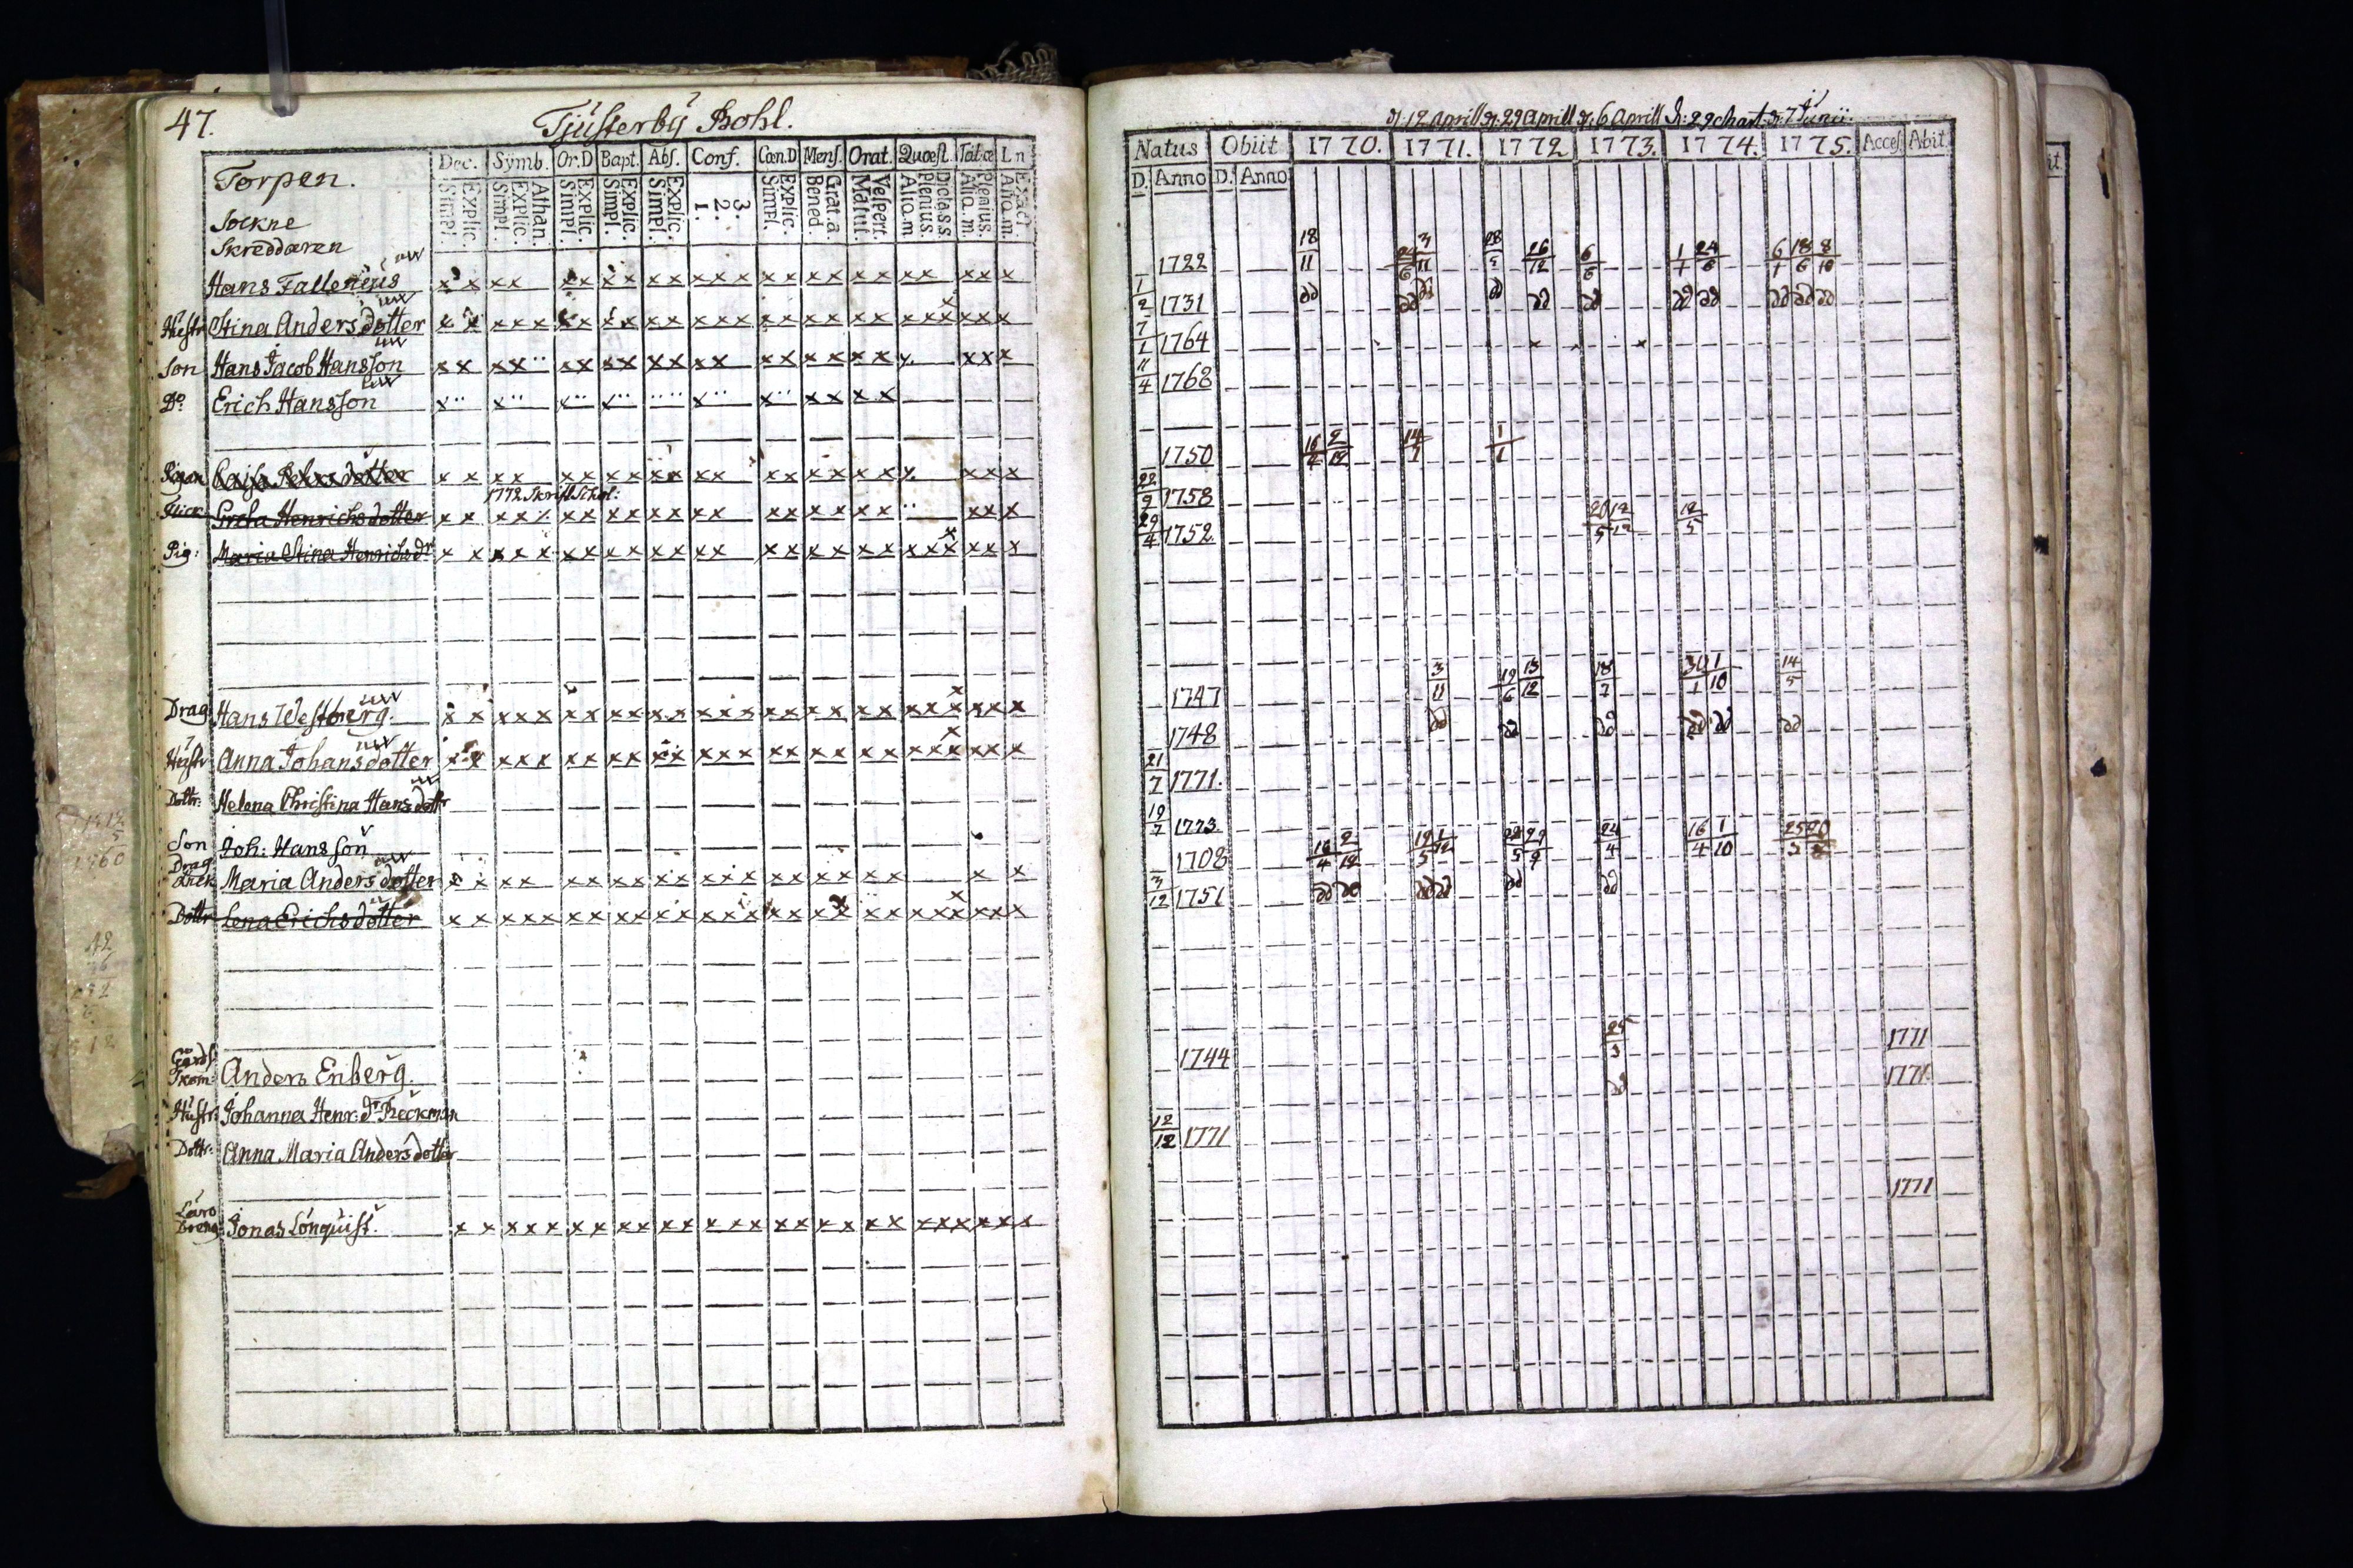 47.
Tjusterby Bohl.
Torpen.
Dec. Symb. Or.D Bapt. Abs. Conf. Cœn.D Mens. Orat. Quœst. Tab.œ L n
Explic. Simpl. Athan. Explic. Simpl. Explic. Simpl. Explic. Simpl. Explic. Simpl. 3. 2. 1. Explic. Simpl. Grat.a Bened. Vespert. Matut. Dicta.s.s. Plenius. Aliq.m Plenius. Aliq.m. Exact. Aliq.m.
Sockne
Skreddaren
Hans Fallenius x x x x x x x x x x x x x x x x x x x x x x x x
Hustr Stina Andersdotter x x x x x x x x x x x x x x x x x x x x x x x x x x x
Son Hans Jacob Hansson x x x x x x x x x x x x x x x x x x x x x x
Do. Erich Hansson x x x x x x x x x x
Pigan Caisa Pehrsdotter x x x x x x x x x x x x x x x x x x x x x
1772
Flick Greta Henrichsdotter x x x x x x x x x x x x x x x x x x x x x
Pig: Maria Stina Henrichsdr x x x x x x x x x x x x x x x x x x x x x x x x
Drag Hans Westberg. x x x x x x x x x x x x x x x x x x x x x x x x x x
Hustr Anna Johansdotter x x x x x x x x x x x x x x x x x x x x x x x x x x
Dottr: Helena Christina Hansdottr
Son Joh: Hansson
Drag
Änck Maria Andersdotter x x x x x x x x x x x x x x x x x x x x x
Dottr Lena Erichsdotter x x x x x x x x x x x x x x x x x x x x x x x x x x
Anders Enberg.
Hustr: Johanna Henr: dr Reckman
Dottr: Anna Maria Andersdotter
Läro
Dreng Jonas Lönquist. x x x x x x x x x x x x x x x x x x x x x x x x x x
d. 12 Aprill d. 29 Aprill d. 6 Aprill d. 29 d. 7 Junii.
Natus Obiit 1770. 1771. 1772 1773. 1774. 1775. Acces. Abit.
D. Anno D. Anno
1722 18/11 24/6 3/11 28/5 26/12 6/6 1/1 24/6 6/1 18/6 8/10
1/2 1731 dd dd dd dd dd dd dd dd dd dd dd
7/1 1764
11/4 1768
1750 16/4 2/12 14/7 1/1
22/9 1758
29/4 1752 20/5 12/12 12/5
1747 3/11 19/6 13/12 18/7 30/1 1/10 14/5
1748 dd dd dd dd dd dd
21/7 1771.
19/7 1773
1708 16/4 2/12 19/5 1/12 28/5 29/9 24/4 16/4 1/10
3/12 1751 dd dd dd dd dd dd
1744 25/3 1771
dd 1771
12/12 1771
1771